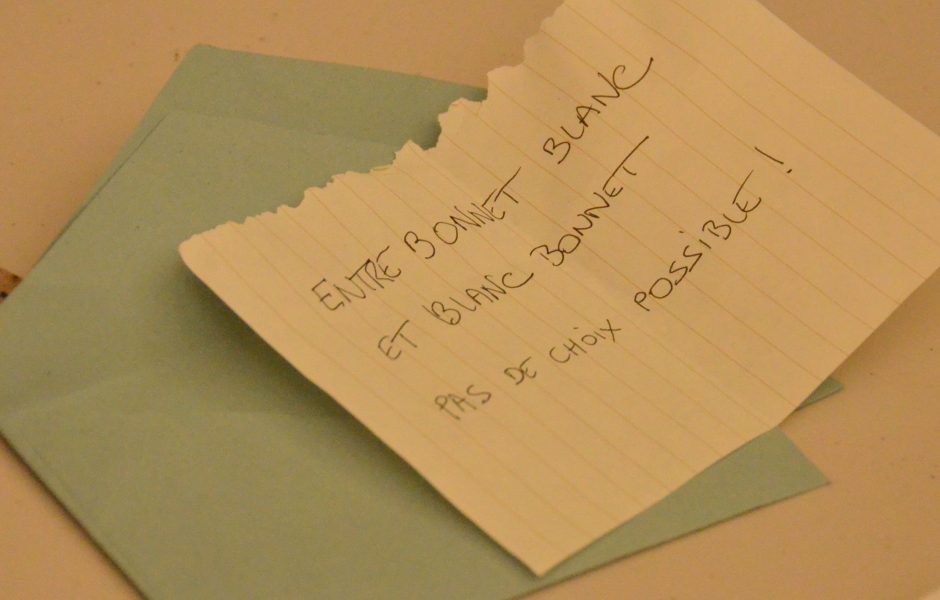 ENTRE BONNET BLANC
ET BLANC BONNET
PAS DE CHOIX POSSIBLE !